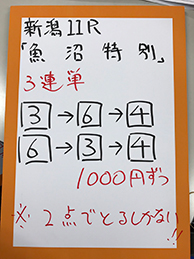 新潟11R
「魚沼特別」
3連単
3→6→4
6→3→4
1000円ずつ
※2点でとるしかない!!